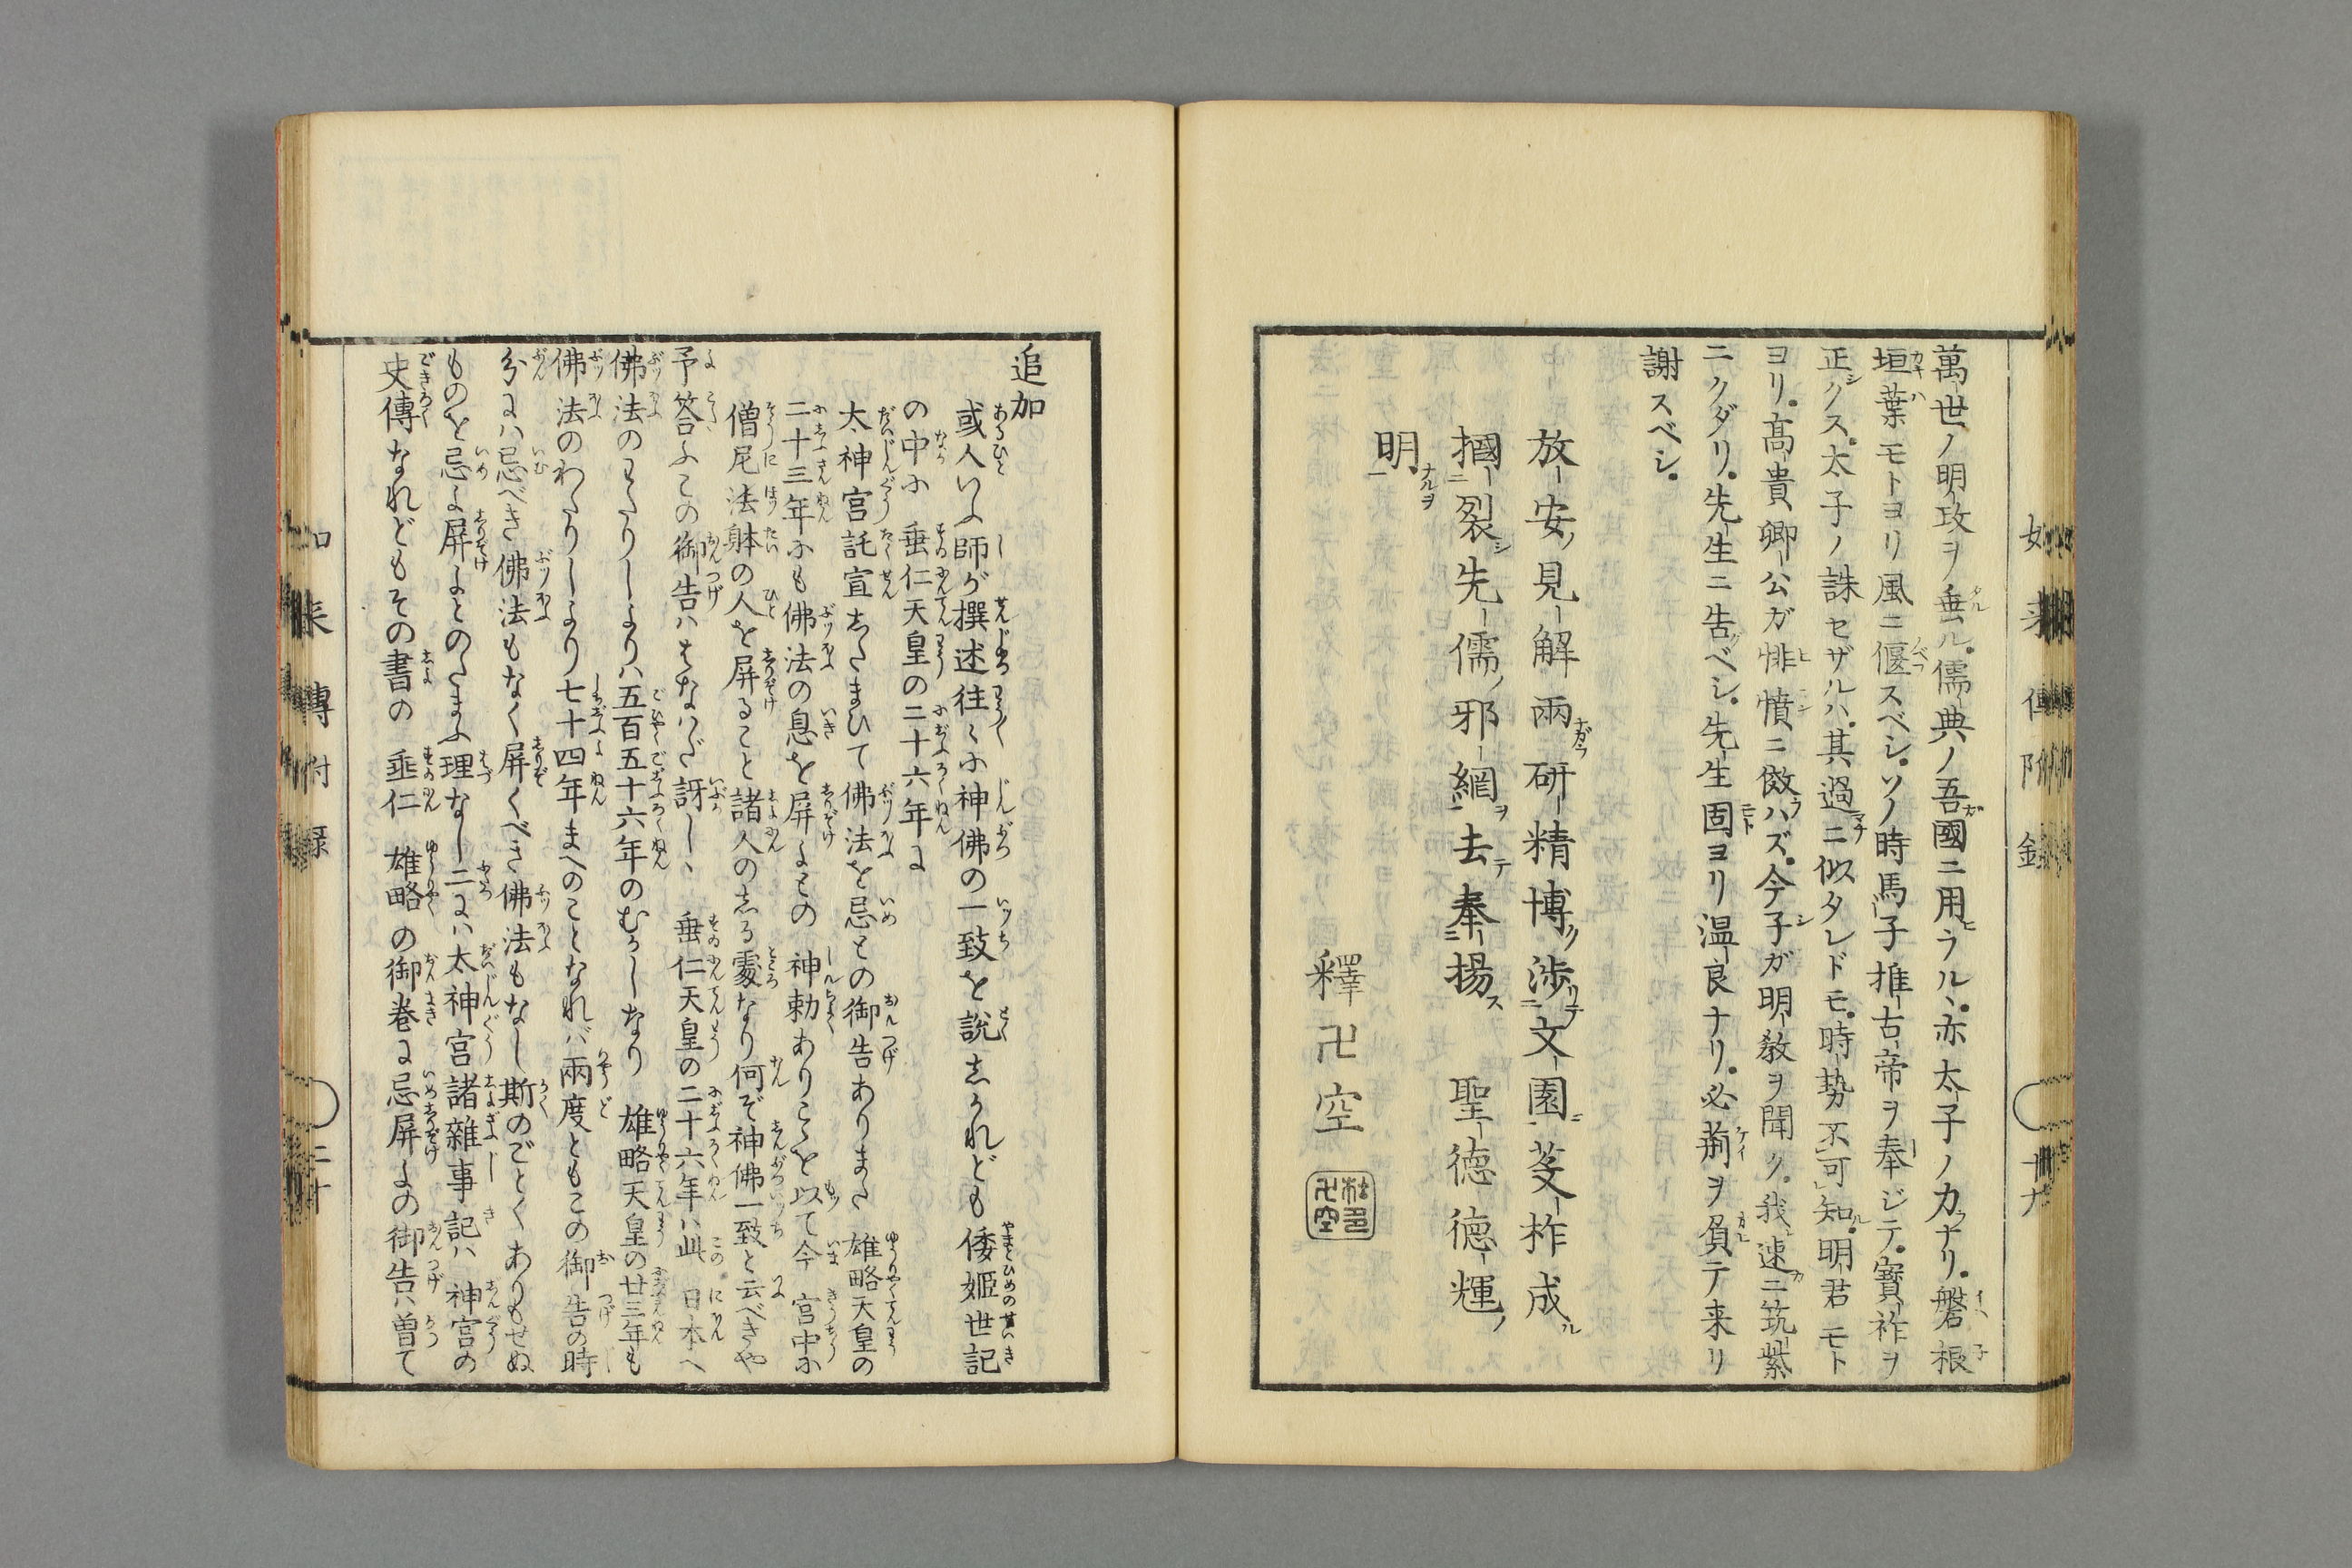 萬世ノ明攻ヲ垂ル。儒典ノ吾國ニ用ヒラル丶。亦太子ノ力ナリ。磐根
垣葉モトヨリ風ニ偃スベシ。ソノ時馬子推古帝ヲ奉ジテ。寶祚ヲ
正クス。太子ノ誅セザルハ。其過ニ似タレドモ。時勢不可知。明君モト
ヨリ。高貴卿公ガ悱憤ニ傚ハズ。今子ガ明教ヲ聞ク。我速ニ筑紫
ニクダリ。先生ニ告ベシ。先生固ヨリ温良ナリ。必荊ヲ負テ来リ
謝スベシ。
放安ノ見解兩研精博ク渉文園芟柞成
摑裂先儒ノ邪網去奉揚聖徳徳輝ノ
明
釋卍空
如来傳附録
十九
追加
或人いふ師が撰述往々に神佛の一致を説しかれども倭姫世記
の中に垂仁天皇の二十六年に
太神宮託宣したまひて佛法を忌との御告ありまた雄略天皇の
二十三年にも佛法の息を屏よとの神勅ありこゝを以て今宮中に
僧尼法躰の人を屏ること諸人のしる處なり何ぞ神佛一致と云べきや
予答ふこの御告ハはなハだ訝し丶垂仁天皇の二十六年ハ此日本へ
佛法のわたりしよりハ五百五十六年のむかしなり雄略天皇の廿三年も
佛法のわたりしより七十四年まへのことなれバ兩度ともこの御告の時
分にハ忌べき佛法もなく屏くべき佛法もなし斯のごとくありもせぬ
ものを忌よ屏よとのたまふ理なし二にハ太神宮諸雜事記ハ神宮の
史傳なれどもその書の垂仁雄略の御巻に忌屏よの御告ハ曽て
如来傳附録
二十